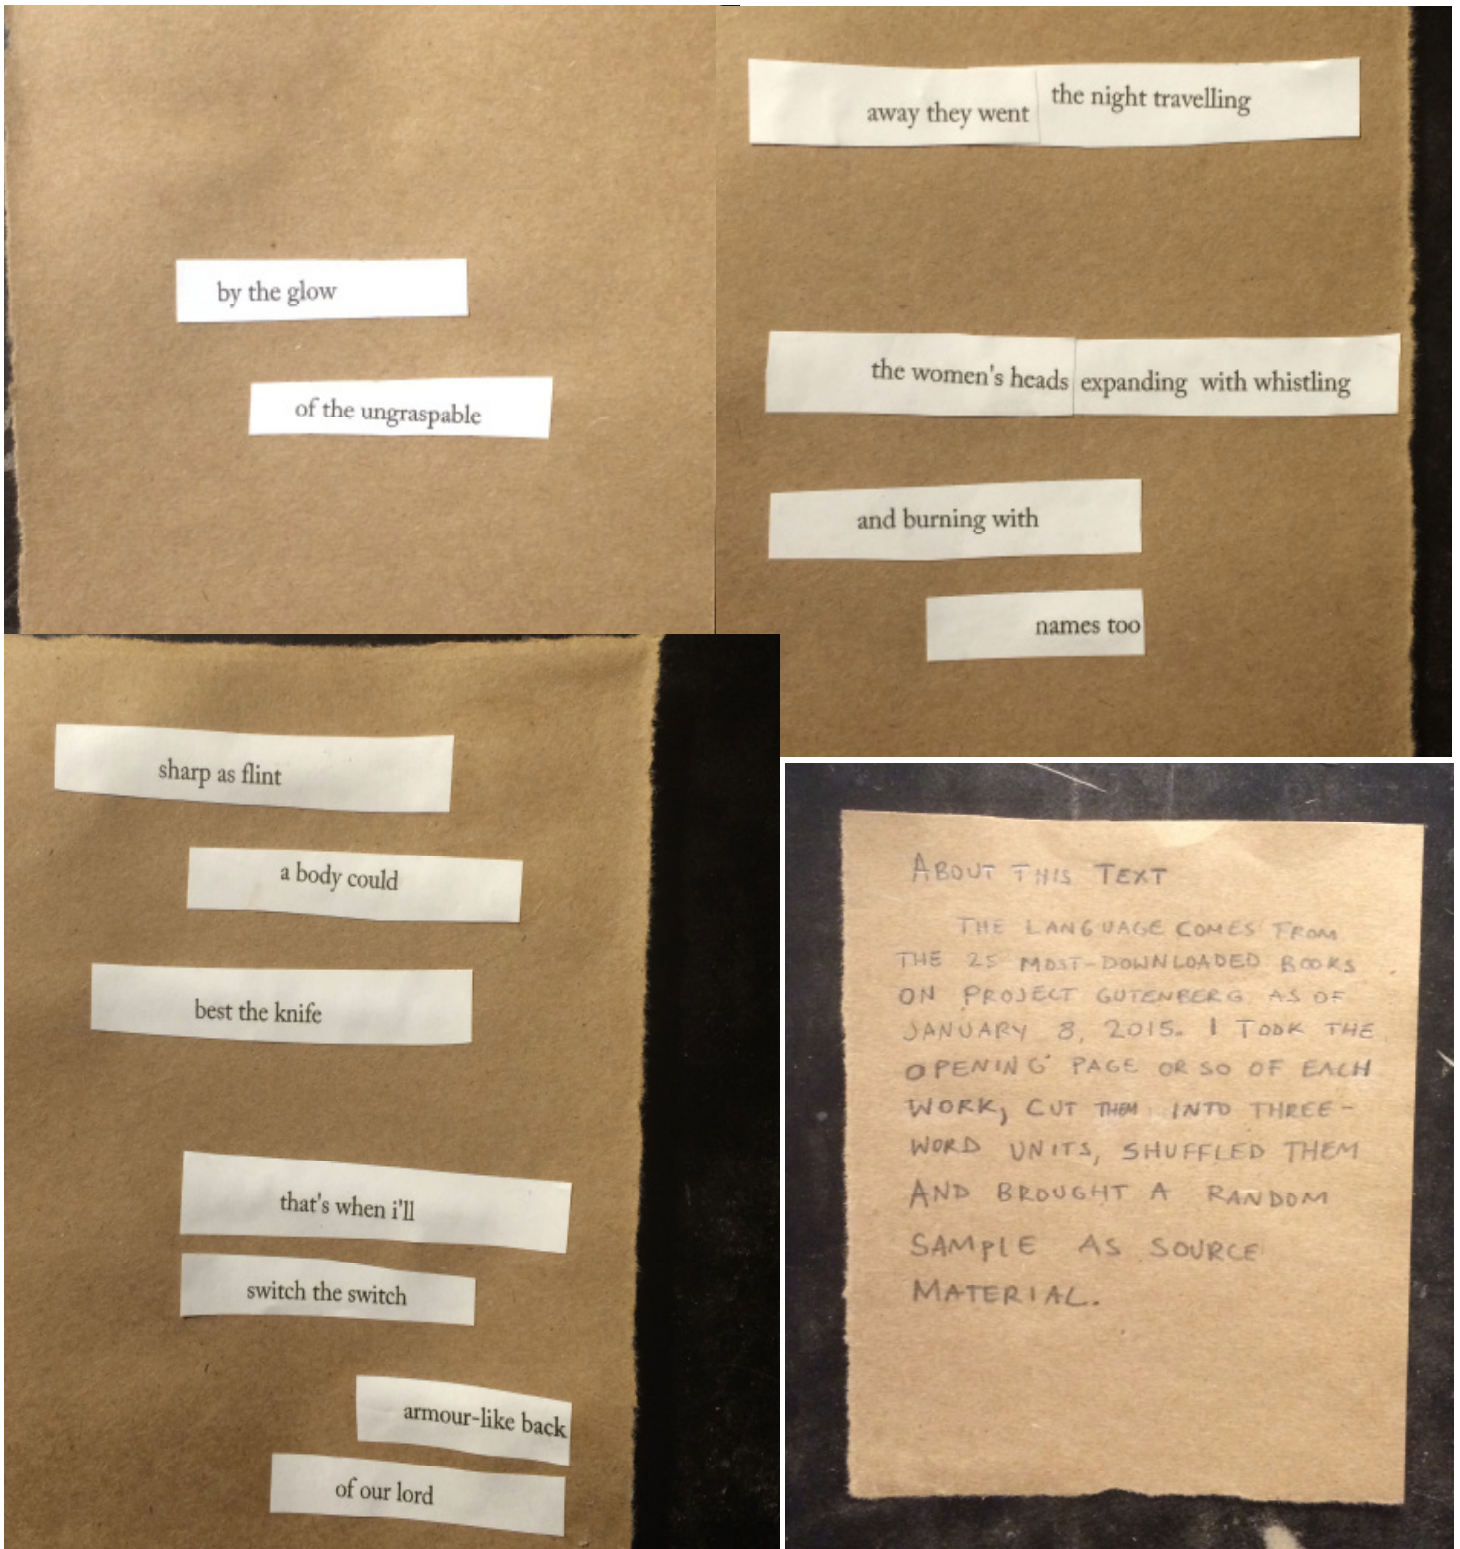 by the glow
of the ungraspable
away they went the night travelling
the women's heads expanding with whistling
and burning with
names too
sharp as flint
a body could
best the knife
that's when i'll
switch the switch
armour-like back
of our lord
ABOUT THIS TEXT
THE LANGUAGE COMES FROM
THE 25 MOST-DOWNLOADED BOOKS
ON PROJECT GUTENBERG AS OF
JANUARY 8, 2015. I TOOK THE
OPENING PAGE OR SO OF EACH
WORK, CUT THEM INTO THREE-
WORD UNITS, SHUFFLED THEM
AND BROUGHT A RANDOM
SAMPLE AS SOURCE
MATERIAL.